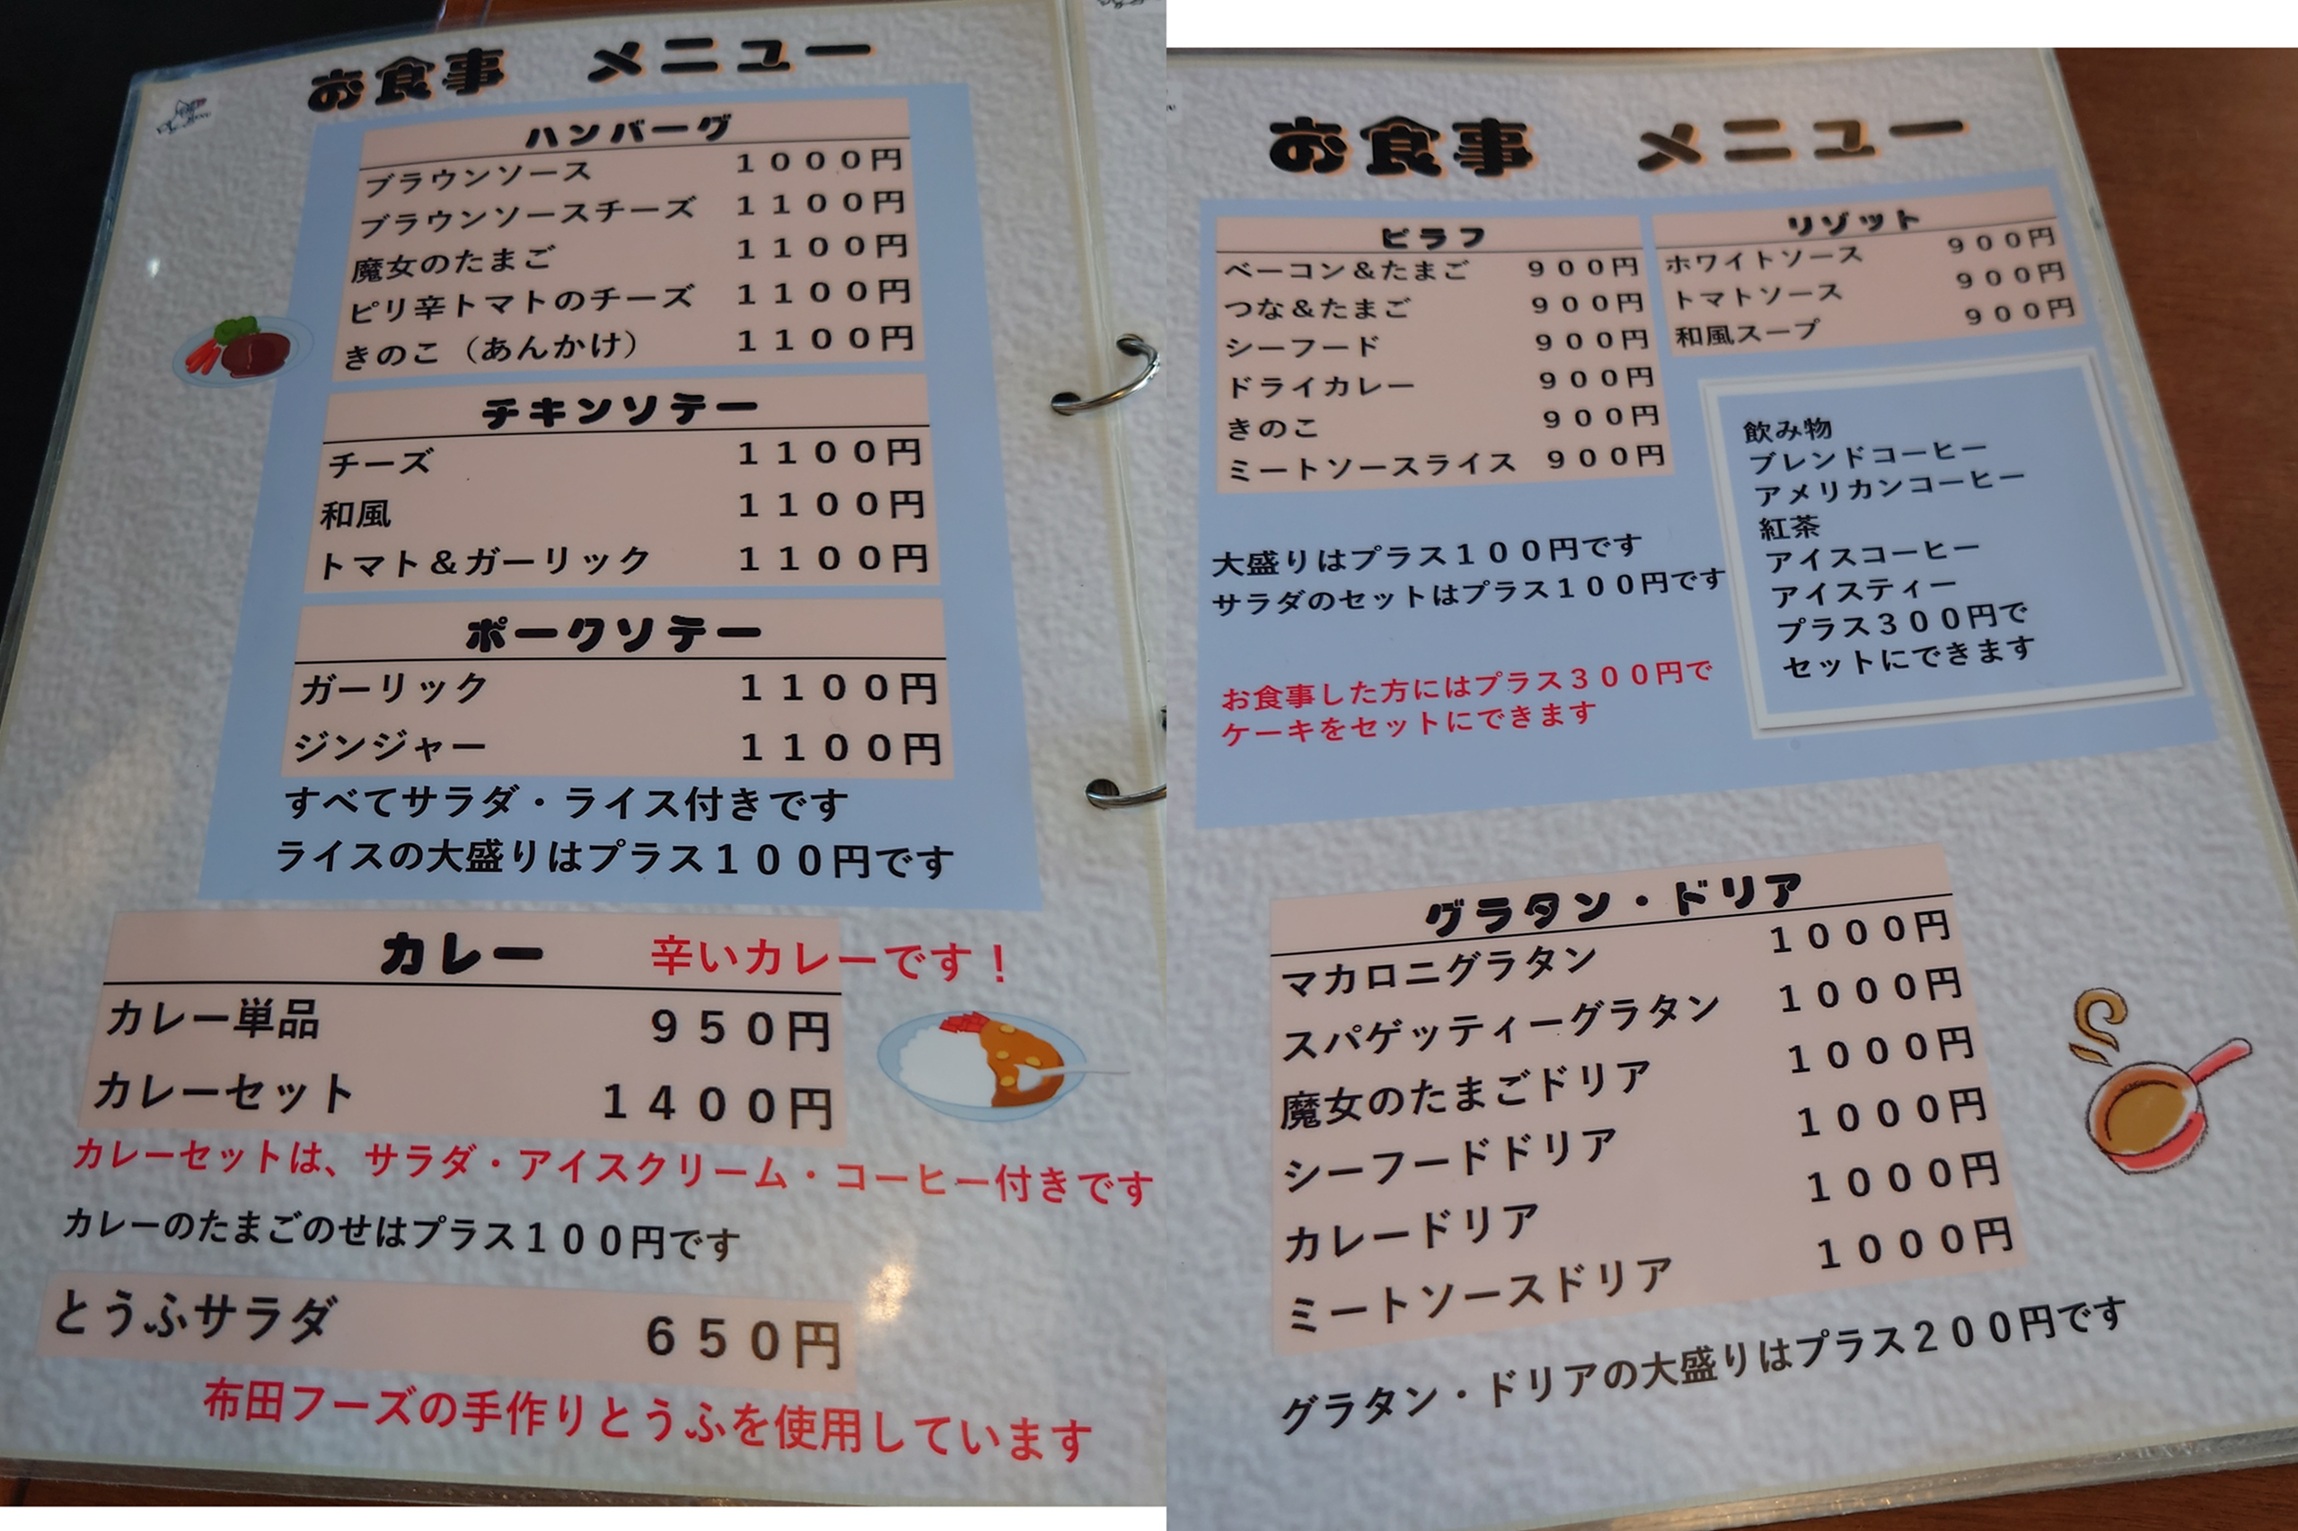 お食事　メニュー
ハンバーグ
ブラウンソース　１０００円
ブラウンソースチーズ　１１００円
魔女のたまご　１１００円
ピリ辛トマトのチーズ　１１００円
きのこ（あんかけ）　１１００円
チキンソテー
チーズ　１１００円
和風　１１００円
トマト＆ガーリック　１１００円
ポークソテー
ガーリック　１１００円
ジンジャー　１１００円
すべてサラダ・ライス付きです
ライスの大盛りはプラス１００円です
カレー　辛いカレーです！
カレー単品　９５０円
カレーセット　１４００円
カレーセットは、サラダ・アイスクリーム・コーヒー付きです
カレーのたまごのせはプラス１００円です
とうふサラダ　６５０円
布田フーズの手作りとうふを使用しています
お食事　メニュー
ピラフ
ベーコン＆たまご　９００円
つな＆たまご　９００円
シーフード　９００円
ドライカレー　９００円
きのこ　９００円
ミートソースライス　９００円
リゾット
ホワイトソース　９００円
トマトソース　９００円
和風スープ　９００円
大盛りはプラス１００円です
サラダのセットはプラス１００円です
お食事した方にはプラス３００円で
ケーキをセットにできます
飲み物
ブレンドコーヒー
アメリカンコーヒー
紅茶
アイスコーヒー
アイスティー
プラス３００円で
セットにできます
グラタン・ドリア
マカロニグラタン　１０００円
スパゲッティーグラタン　１０００円
魔女のたまごドリア　１０００円
シーフードドリア　１０００円
カレードリア　１０００円
ミートソースドリア　１０００円
グラタン・ドリアの大盛りはプラス２００円です